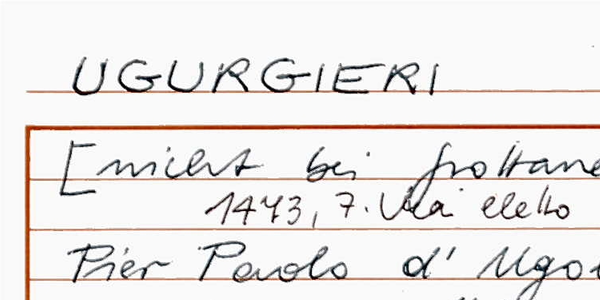 UGURGIERI
[nicht bei Grottane
1473, 7. Mai eletto
Pier Paolo d' Ugo